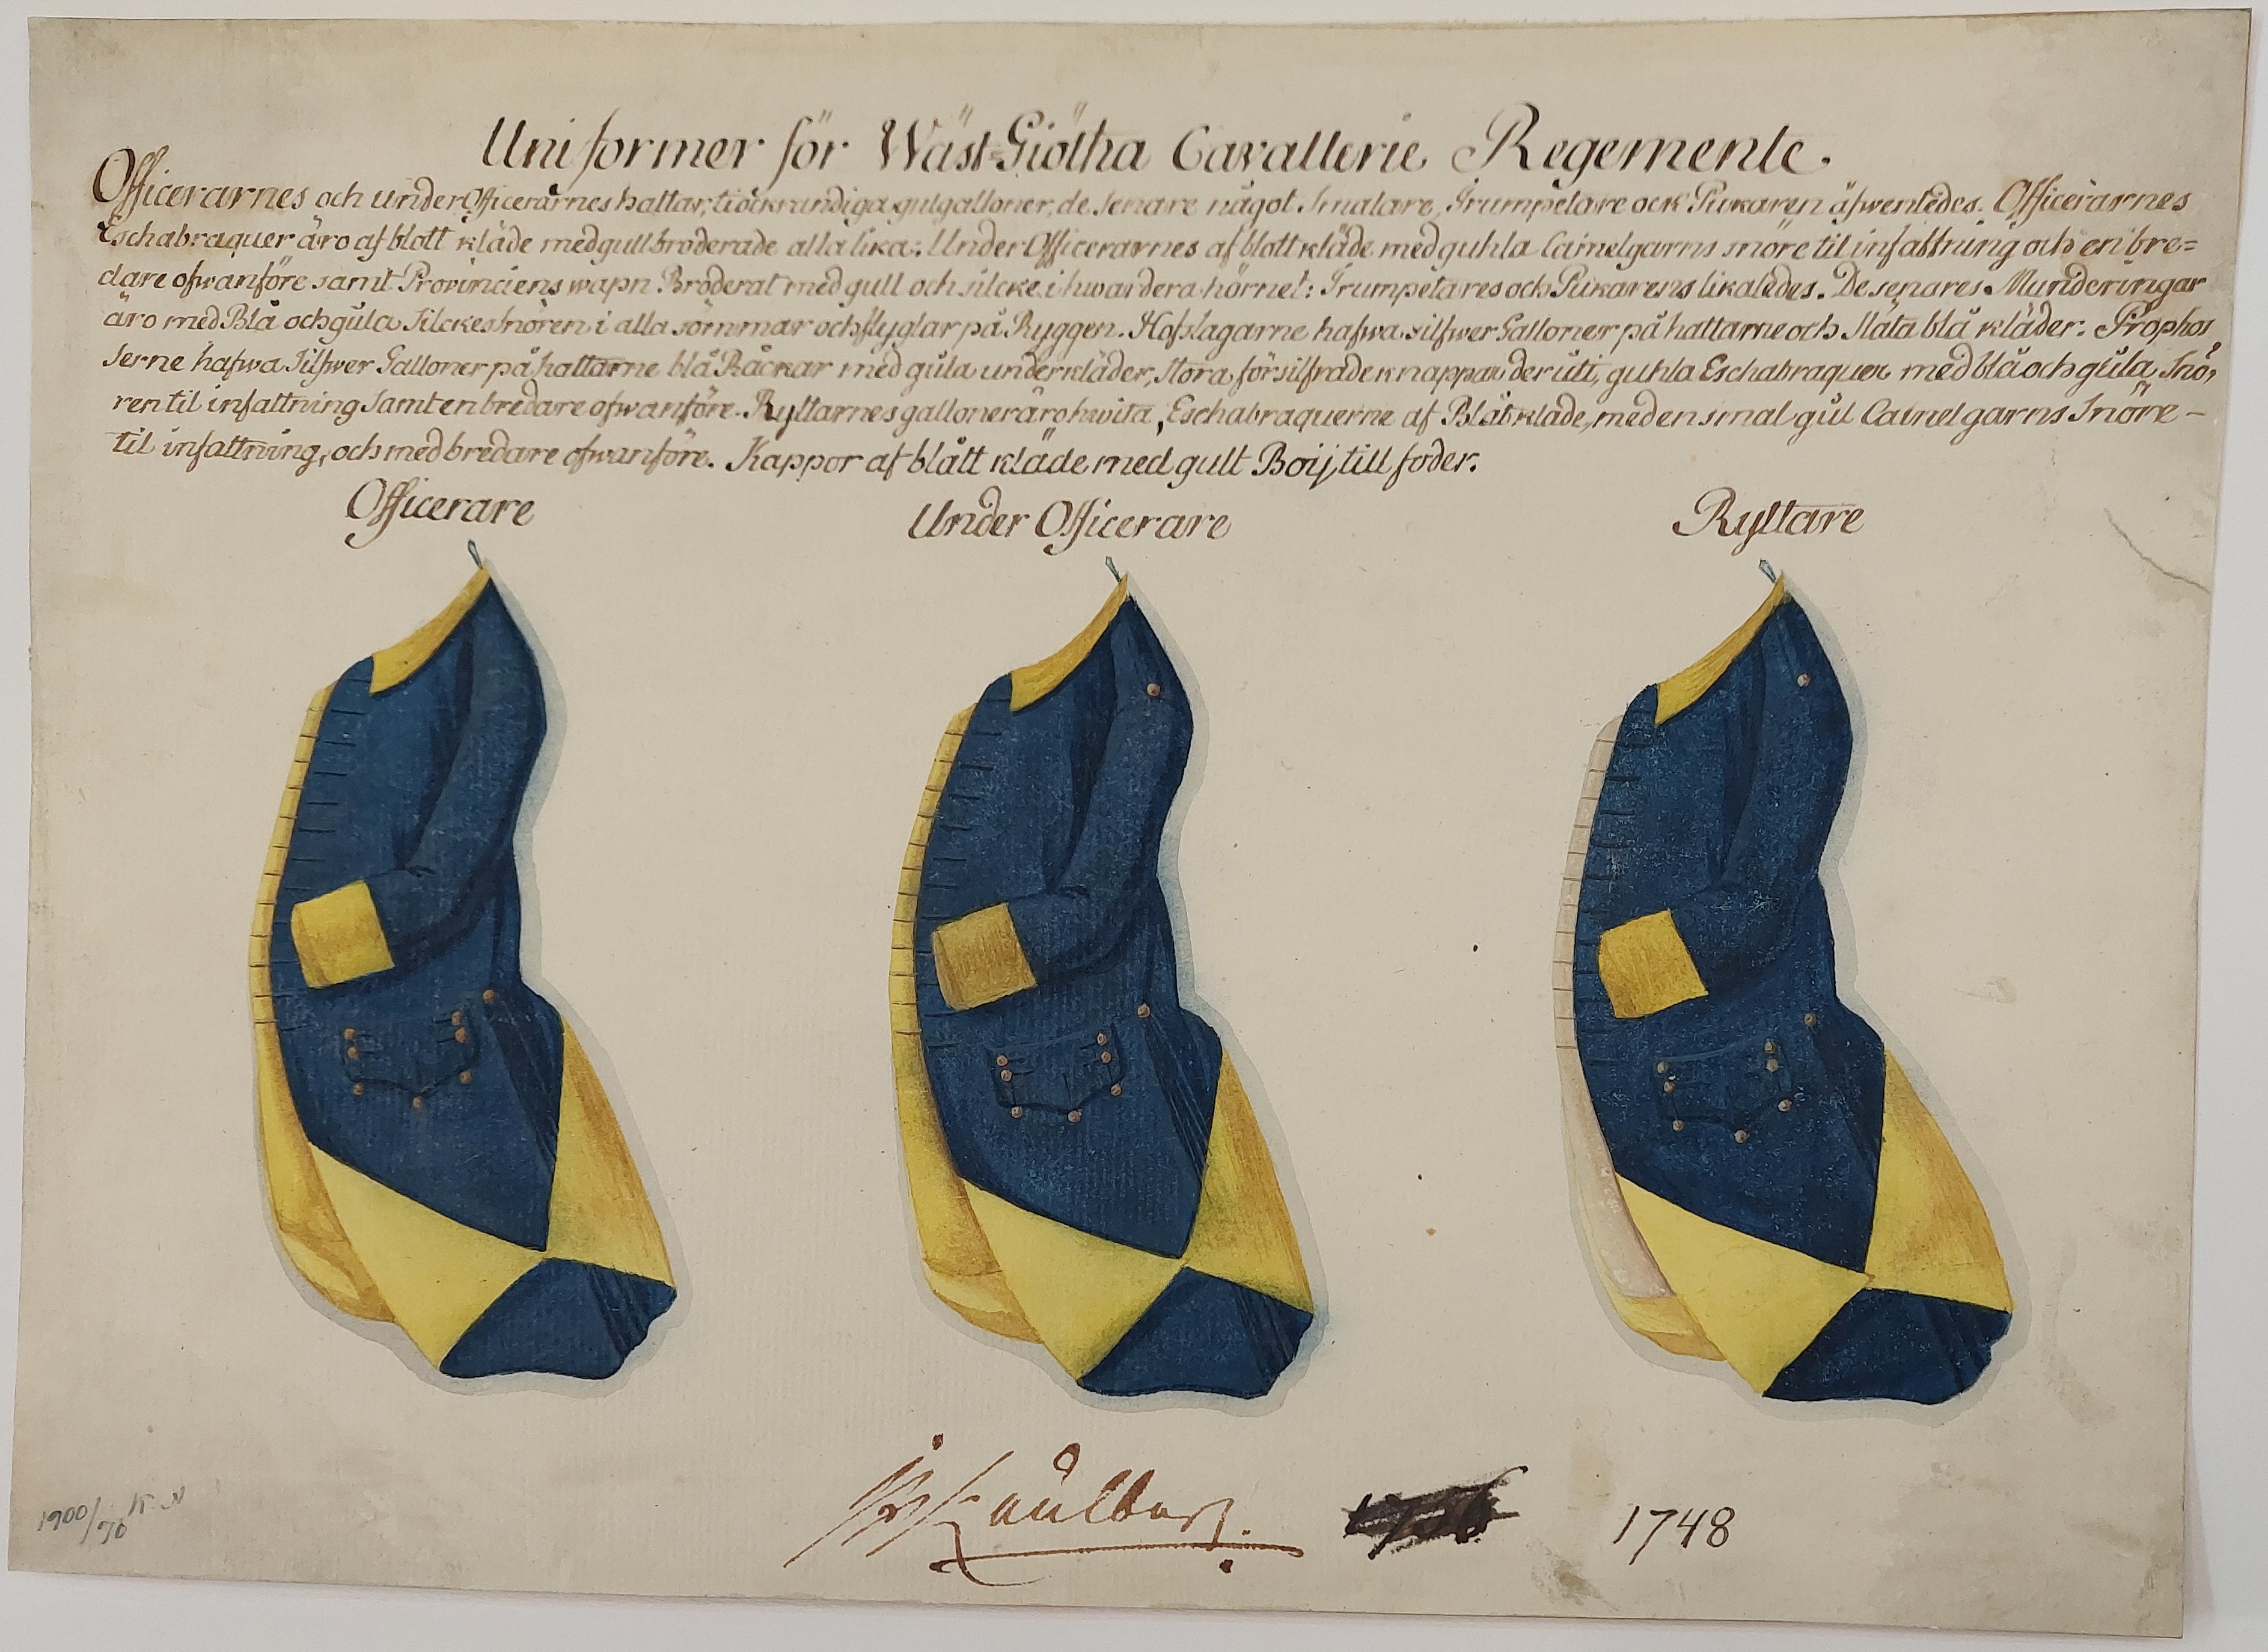 Uniformer för Wäst-Giötha Cavallerie Regemente.
Officerarnes och underOfficerarnes hattar, tiöckrandiga gulgalloner, de senare något smalare, Trumpetare ock Pukaren äfwenledes. Officerarnes
Eschabraquer äro af blott kläde med gull broderade alla lika: Under Officerarnes af blott kläde med guhla Camelgarns snöre til infattning och en bre=
dare ofwanföre samt Provinciens wapn Broderat med gull och silcke i hwardera hörnet: Trumpetares och Pukarens likaledes. De senares Munderingar
äro med Blå och gula Silckes snören i alla sömmar och flyglar på Ryggen. Hofslagarne hafwa silfwer Galloner på hattarne och släta blå kläder. Prophos
serne hafwa Silfwer Galloner på hattarne blå Råckar med gula underkläder, stora försilfrade knappar deruti, guhla Eschabraquer med blå och gula Snö,
ren til infattning samt en bredare ofwanföre. Ryttarnes galloner äro hwita, Eschabraquerne af Blåt kläde, med en smal gul Camelgarns Snöre -
til infattning, och med bredare ofwanföre. Kappor af blått kläde med gult Boij till foder.
Officerare Under Officerare Ryttare
Kaulbars. 1748
1900/76